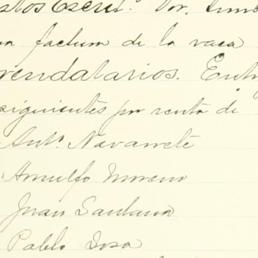 stos Escrit.ª Por. timb
a factura de la vaca
rendatarios. Entr
siguientes por renta de
Ant.º Navarrete
Arnulfo Moreno
Juan Santana
Pablo Sosa